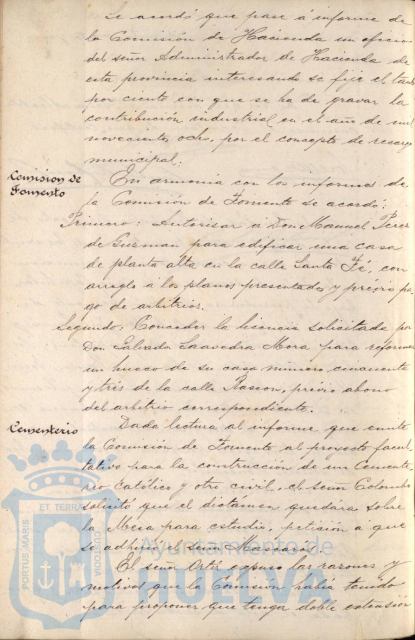 Se acordó que pase á informe de
la Comisión de Hacienda un oficio
del señor Administrador de Hacienda de
esta provincia interesando se fije el tanto
por ciento con que se ha de gravar la
contribución industrial en el año de mil
novecientos ocho, por el concepto de recargo
municipal.
Comision de
Fomento
En armonia con los informes de
la Comisión de Fomento se acordó:
Primero: Autorisar á Don Manuel Perez
de Guzman para edificar una casa
de planta alta en la calle Santa Fé, con
arreglo á los planos presentados y previo pa-
go de arbitrios.
Segundo: Conceder la licencia solicitada por
Don Salvador Saavedra Mora para reformar
un hueco de su casa número cincuenta
y tres de la calle Rascon, previo abono
del arbitrio correspondiente.
Cementerio
Dada lectura al informe que emite
la Comisión de Fomento al proyecto facul-
tativo para la construccion de un Cemente
rio Católico y otro civil, el señor Colombo
solicitó que el dictámen quedara sobre
la Mesa para estudio, petición a que
se adhirió el señor Mascarós.
El señor Ortiz expuso las razones y
motivos que la Comisión habia tenido
para proponer que tenga doble extensión
PORTUS MARIS
ET TERRAE
CUSTODIA
Ayuntamiento de
HUELVA